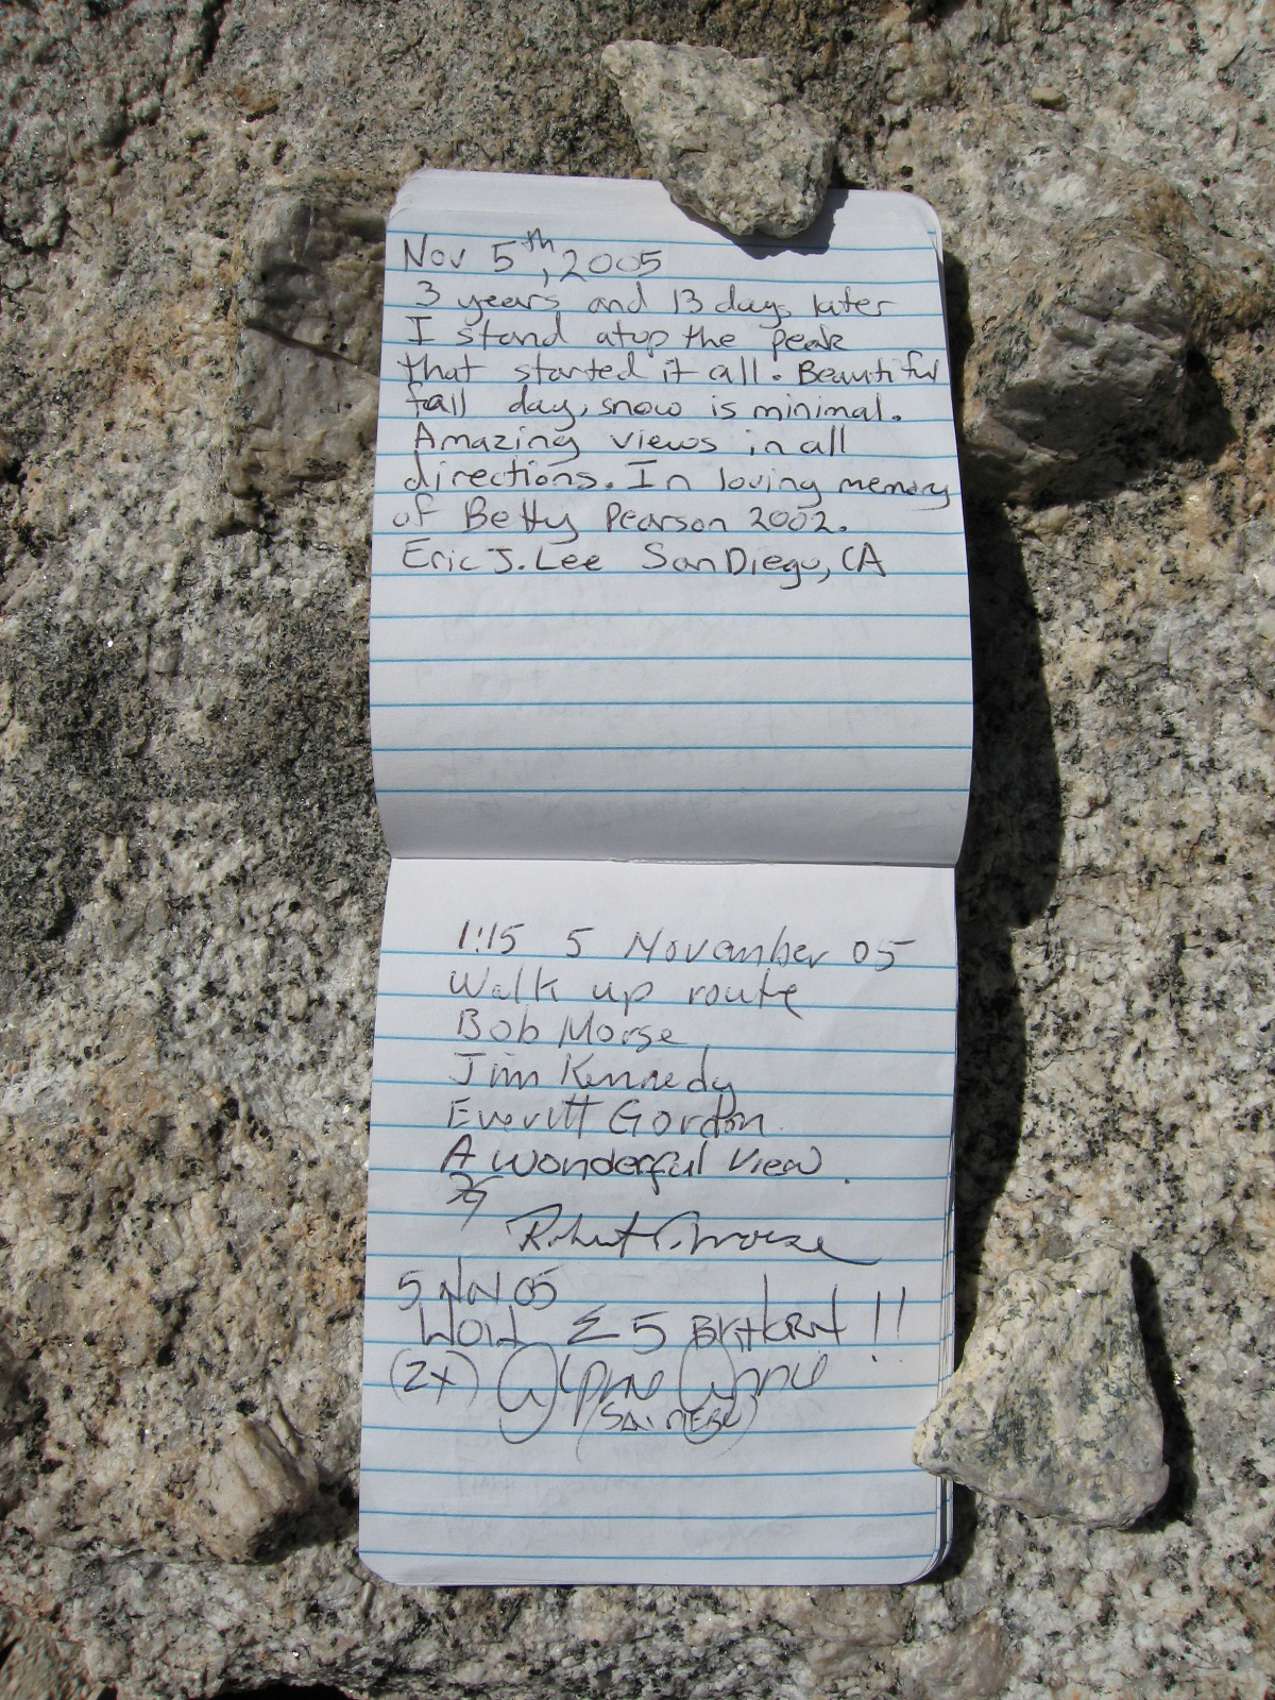 Nov 5th, 2005
3 years and 13 days later
I stand atop the peak
that started it all. Beautiful
fall day, snow is minimal.
Amazing views in all
directions. In loving memory
of Betty Pearson 2002.
Eric J. Lee San Diego, CA
1:15 5 November 05
Walk up route
Bob Morse
Jim Kennedy
Everitt Gordon
A wonderful view.
5 Nov 05
5
(2x)